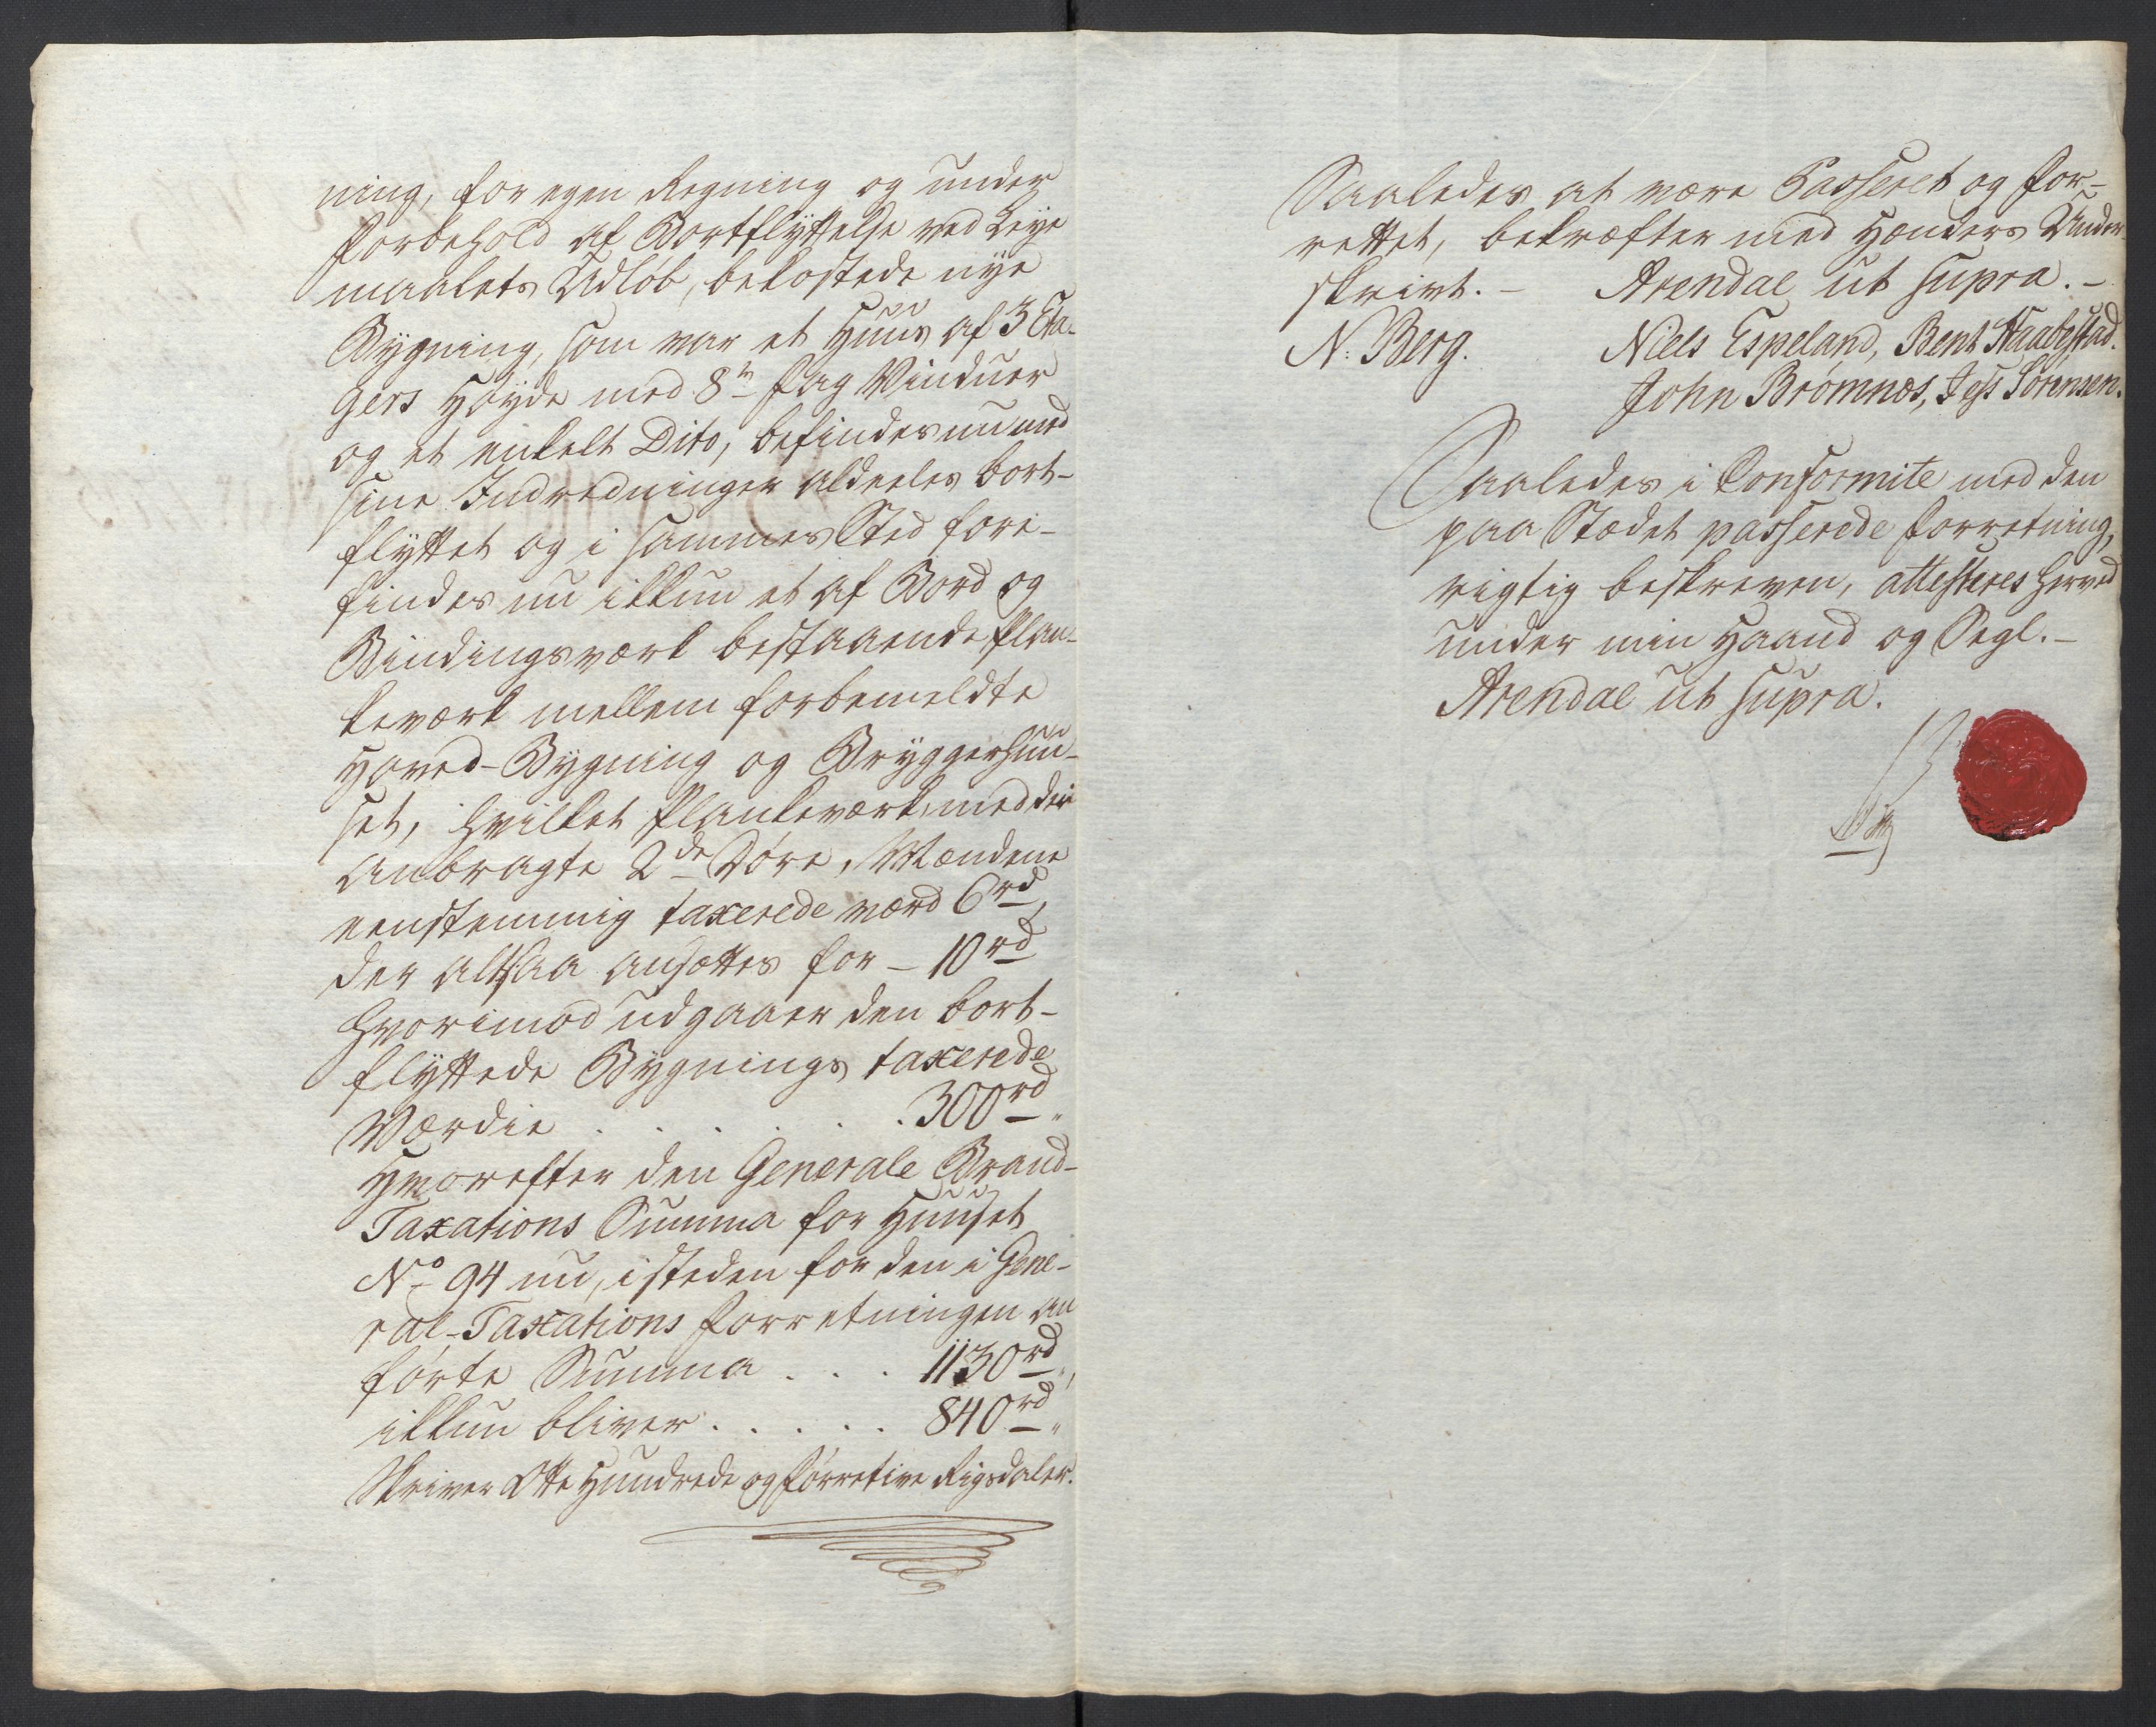 ning, for egen Regning og under
Forbehold af Bortflyttelse ved Leye
maalets Udløb, bekostede nye
Bygning, som var et Huus af 3 Eta-
gers Høyde med 8te Fag Vinduer
og et enkelt Dito, befindes nu med
sine Indredninger aldeeles bort-
flyttet og i sammes Sted fore-
findes nu ikkun et af Bord og
Bindingsværk bestaaende Plan-
keværk mellem forbemeldte
Hoved-Bygning og Bryggerhuu-
set, hvilket Plankeværk, med der
anbragte 2de Døre, Mændene
eenstemmig taxerede værd 6rd,
der altsaa ansættes for – 10rd
Hvorimod udgaaer den bort-
flyttede Bygnings taxerede
Værdie . . . . . . 300rd „
Hvorefter den Generale Brand-
Taxations Summa for Huuset
No 94 nu, isteden for den i Gene-
ral-Taxations Forretningen an
førte Summa . . . 1130rd„,
ikkun bliver . . . . . 840rd „
Skriver Otte Hundrede og Førretive Rigsdaler.
Saaledes at være Passeret og for-
rettet, bekræfter med Hænders Under-
skrivt. – Arendal ut supra. –
N. Berg. Niels Espeland, Bent Staabestad.
John Brømnes, Jess Sørensen.
Saaledes i Conformite med den
paa Stædet passerede Forretning,
rigtig beskreven, attesteres herved
under min Haand og Segl. –
Arendal ut supra.